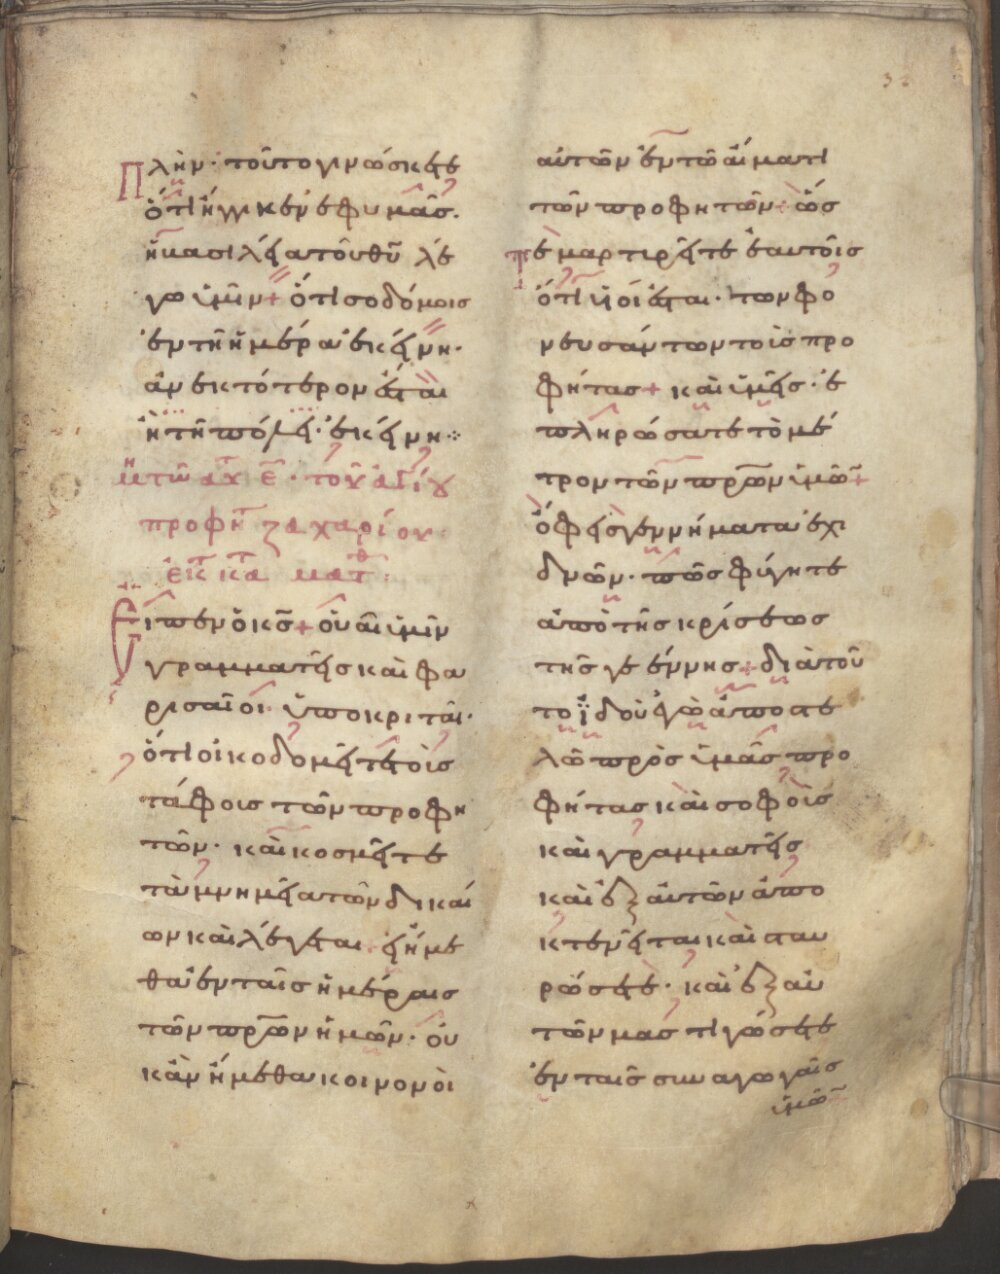 32
Πλὴν· τοῦτο γινώσκετε
ὅτι ἤγγικεν ἐφ υμᾶς·
ἡ βασιλεία τοῦ θῦ λέ
γω ὑμῖν + ὅτι σοδόμοις
ἐν τῆ ἡμέρα ἐκείνη·
ἀνεκτότερον ἔσται
ἢ τῆ πόλει· ἐκείνη ⁘
τοῦ ἁγίου
προφη ζαχαρίου·
ἐκ κα ματθ:
Εἶπεν ὁ κς + οὐαι ὑμῖν
γραμματεῖς καὶ φα
ρισαῖοι· ὑποκριταὶ·
ὅτι οἰκοδομεῖτε τοὶς
τάφοις τῶν προφη
τῶν· καὶ κοσμεῖτε
τὰ μνημεῖα τῶν δικαί
ων καὶ λέγεται + εἰ ἤμε
θα ἐν ταῖς ἡμέραις
τῶν πρων ἡμῶν· οὐ
κἂν ἤμεθα κοινονὸι
αὐτῶν ἐν τῶ αἵματι
τῶν προφητῶν + ὥσ
τε μαρτιρεῖτε ἑαυτοῖς
ὅτι ὑοί ἐσται· των φο
νευσάντων τοὶς προ
φήτας + καὶ ὑμεῖς· ἐ
πληρώσατε τὸ μέ
τρον τῶν πρων ὑμῶ +
ὄφεις γεννήματα ἐχι
δνῶν· πῶς φύγητε
ἀπὸ τῆς κρίσεως
τῆς γεέννης + διὰ τοῦ
το ϊδοὺ ἐγὼ ἀποστε
λῶ πρὸς ὑμᾶς προ
φήτας καὶ σοφοὶς
καὶ γραμματεῖς
καὶ ἐξ αὐτῶν ἀπο
κτενεῖται καὶ σταυ
ρώσετε· καὶ ἐξ αὐ
τῶν μαστιγώσετε
ἐν ταῖς συναγωγαῖς
ὑμῶ